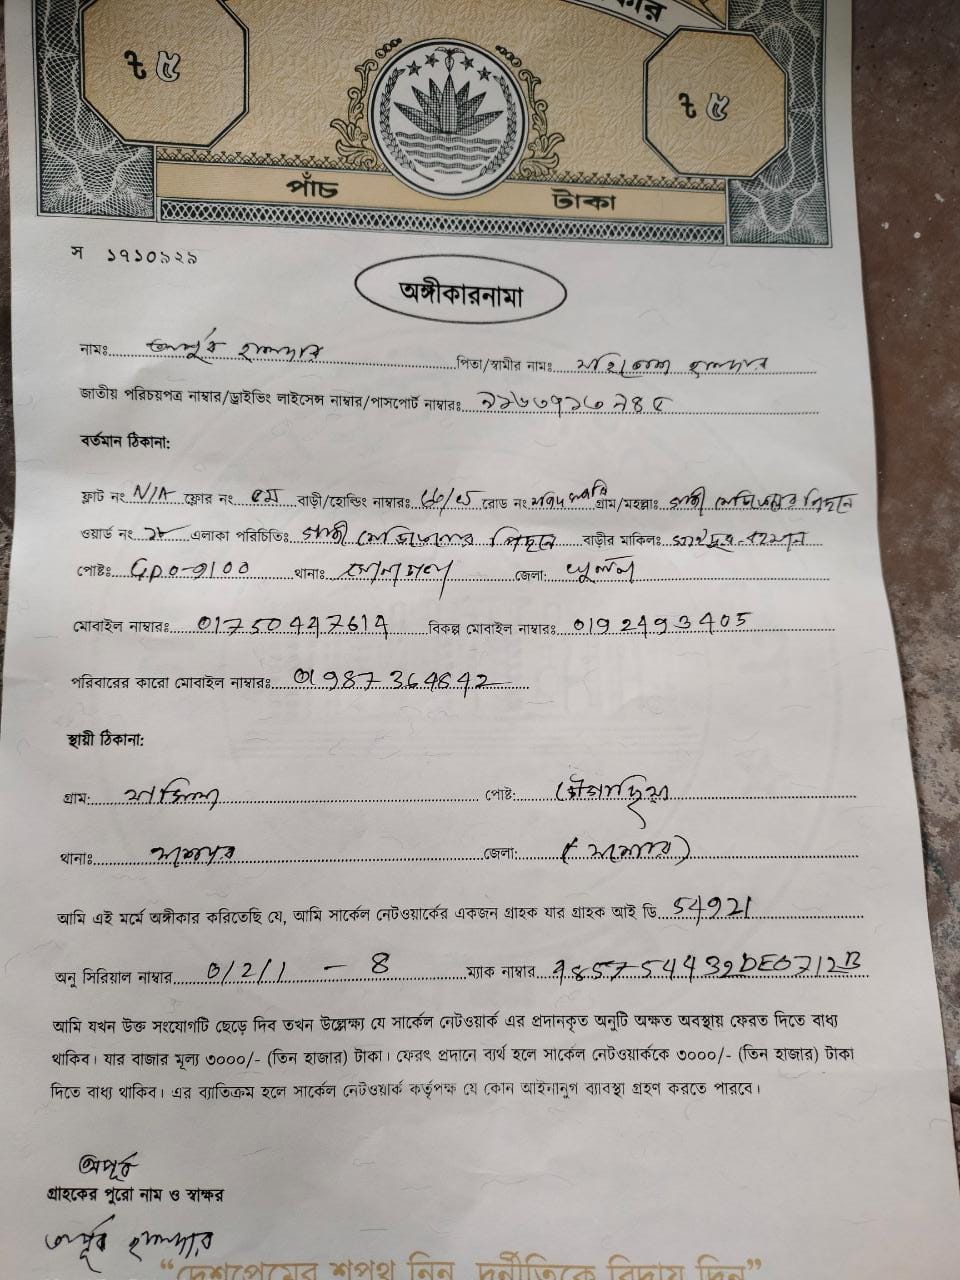 ৳ ৫
৳ ৫
পাঁচ টাকা
স ১৭১০৯২৯
অঙ্গীকারনামা
নামঃ অপূর্ব হালদার পিতা/স্বামীর নামঃ হালদার
জাতীয় পরিচয়পত্র নাম্বার/ড্রাইভিং লাইসেন্স নাম্বার/পাসপোর্ট নাম্বারঃ
বর্তমান ঠিকানা:
ফ্লাট নং N/A ফ্লোর নং ৫ম বাড়ী/হোল্ডিং নাম্বারঃ রোড নং গ্রাম/মহল্লাঃ গাজী মেডিকেলের পিছনে
ওয়ার্ড নং ১৮ এলাকা পরিচিতিঃ গাজী মেডিকেলের পিছনে বাড়ীর মালিকঃ
পোষ্টঃ GPO-9100 থানাঃ সোনাডাঙ্গা জেলা: খুলনা
মোবাইল নাম্বারঃ 01750447614 বিকল্প মোবাইল নাম্বারঃ 01924993405
পরিবারের কারো মোবাইল নাম্বারঃ 01987364842
স্থায়ী ঠিকানা:
গ্রাম: পোষ্ট:
থানাঃ জেলা:
আমি এই মর্মে অঙ্গীকার করিতেছি যে, আমি সার্কেল নেটওয়ার্কের একজন গ্রাহক যার গ্রাহক আই ডি 54921
অনু সিরিয়াল নাম্বার 0/2/1 - 8 ম্যাক নাম্বার 485754439DE0712B
আমি যখন উক্ত সংযোগটি ছেড়ে দিব তখন উল্লেক্ষা যে সার্কেল নেটওয়ার্ক এর প্রদানকৃত অনুটি অক্ষত অবস্থায় ফেরত দিতে বাধ্য
থাকিব। যার বাজার মূল্য ৩০০০/- (তিন হাজার) টাকা। ফেরৎ প্রদানে ব্যর্থ হলে সার্কেল নেটওয়ার্ককে ৩০০০/- (তিন হাজার) টাকা
দিতে বাধ্য থাকিব। এর ব্যাতিক্রম হলে সার্কেল নেটওয়ার্ক কর্তৃপক্ষ যে কোন আইনানুগ ব্যাবস্থা গ্রহণ করতে পারবে।
অপূর্ব
গ্রাহকের পুরো নাম ও স্বাক্ষর
অপূর্ব হালদার
“দেশপ্রেমের শপথ নিন, দুর্নীতিকে বিদায় দিন”